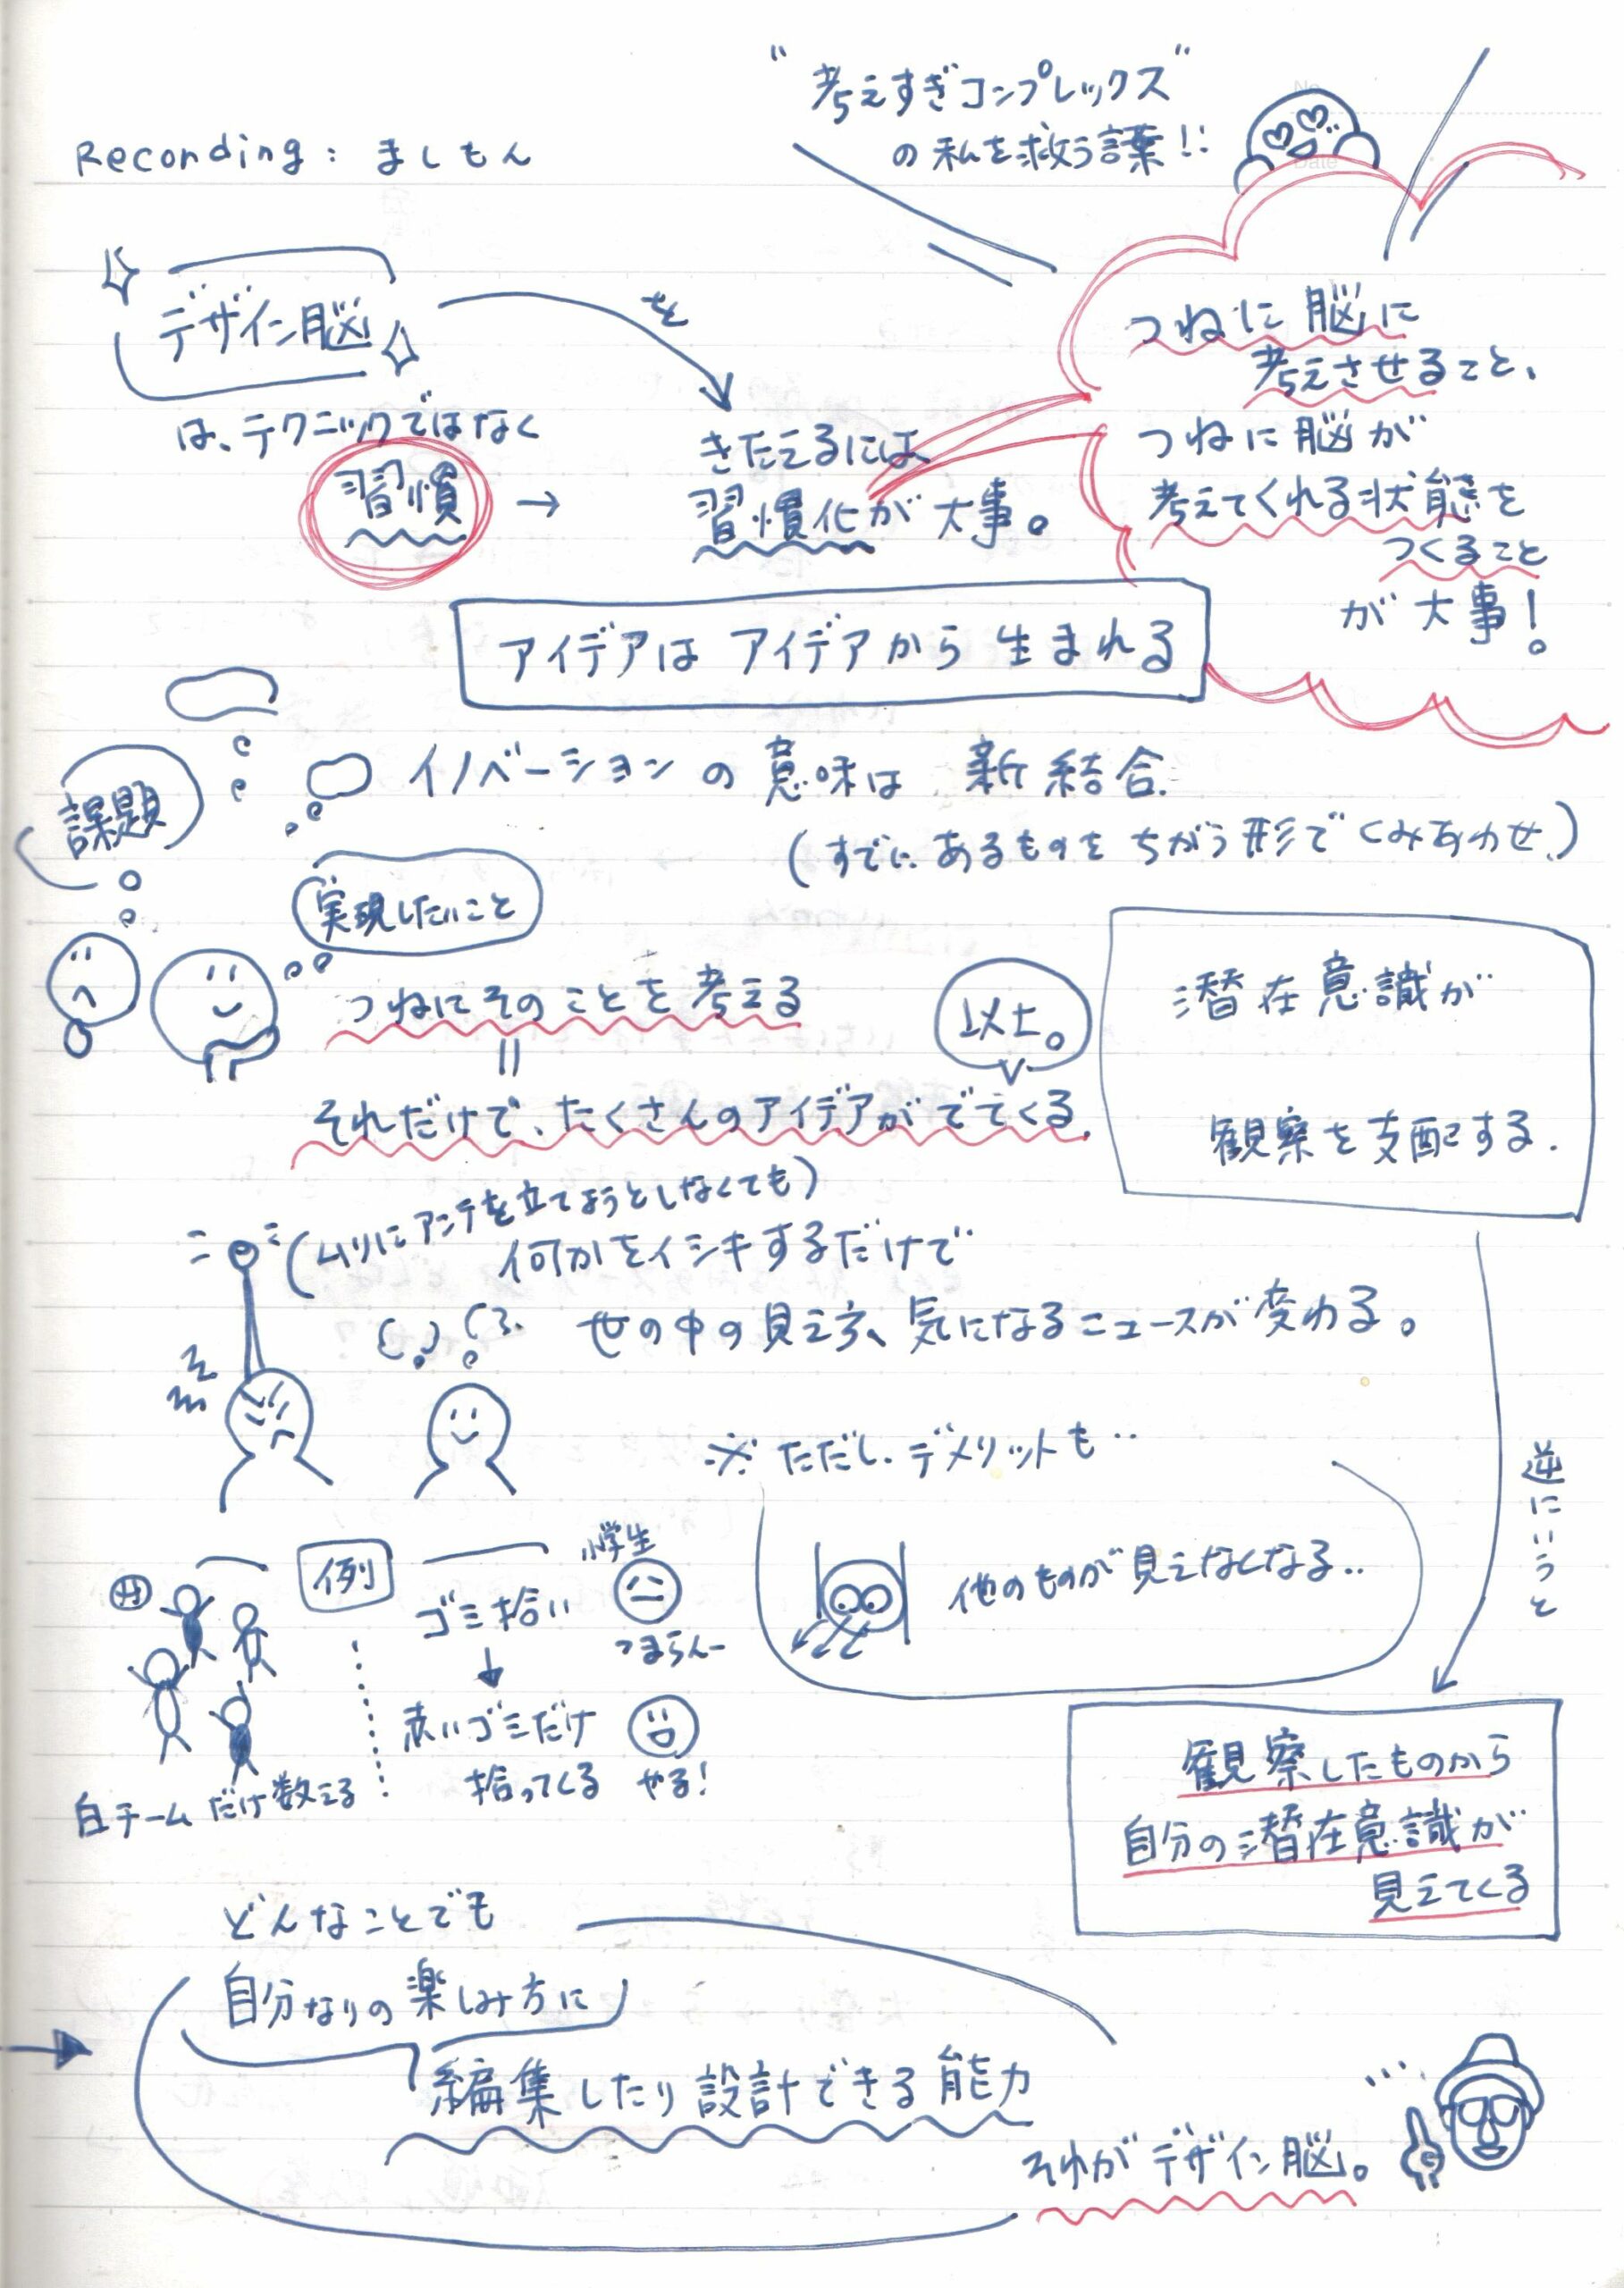 Reconding: ましもん
"考えすぎコンプレックス"
の私を救う言葉!!
デザイン脳
は、テクニックではなく
習慣
→
を
きたえるには
習慣化が大事。
つねに脳に
考えさせること、
つねに脳が
考えてくれる状態を
つくること
が大事!
アイデアは アイデアから 生まれる
イノベーションの意味は 新結合.
(すでにあるものを ちがう形で くみあわせ.)
課題
実現したいこと
つねにそのことを考える
||
それだけで、たくさんのアイデアがでてくる.
以上。
潜在意識が
観察を支配する.
(ムリにアンテを立てようとしなくても)
何かをイシキするだけで
世の中の見え方、気になるニュースが変わる。
※ ただし、デメリットも..
他のものが見えなくなる..
逆にいうと
例
白チームだけ数える
ゴミ拾い
小学生
つまらんー
赤いゴミだけ
拾ってくる
やる!
観察したものから
自分の潜在意識が
見えてくる
どんなことでも
自分なりの楽しみ方に
編集したり設計できる能力
それがデザイン脳。